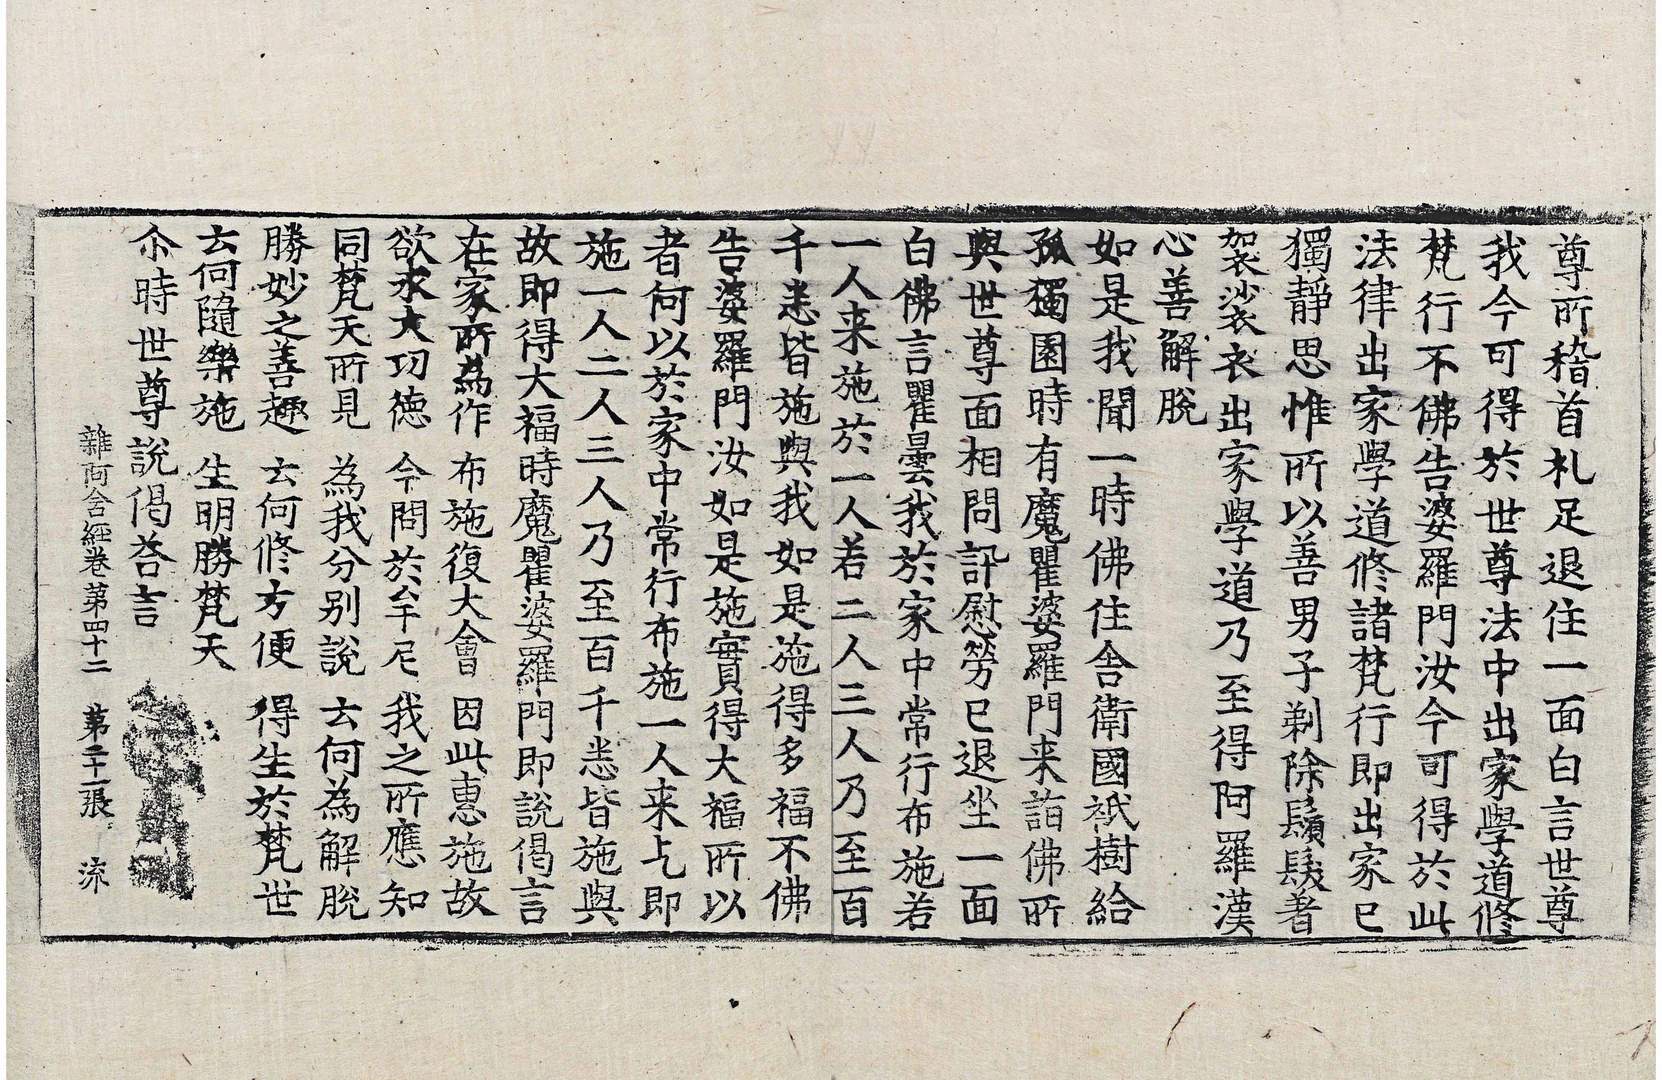 尊所稽首礼足退住一面白言世尊
我今可得於世尊法中出家學道修
梵行不佛告婆羅門汝今可得於此
法律出家學道修諸梵行即出家已
獨靜思惟所以善男子剃除鬚髮著
袈裟衣出家學道乃至得阿羅漢
心善解脫
如是我聞一時佛住舍衛國祇樹給
孤獨園時有魔瞿婆羅門来詣佛所
與世尊面相問訊慰勞已退坐一面
白佛言瞿曇我於家中常行布施若
一人来施於一人若二人三人乃至百
千悉皆施與我如是施得多福不佛
告婆羅門汝如是施實得大福所以
者何以於家中常行布施一人来乞即
施一人二人三人乃至百千悉皆施與
故即得大福時魔瞿婆羅門即說偈言
在家所為作 布施復大會 因此惠施故
欲求大功德 今問於牟尼 我之所應知
同梵天所見 為我分别說 云何為解脫
勝妙之善趣 云何修方便 得生於梵世
云何隨樂施 生明勝梵天
尒時世尊說偈荅言
雜阿含經卷第四十二 第二十二張 流